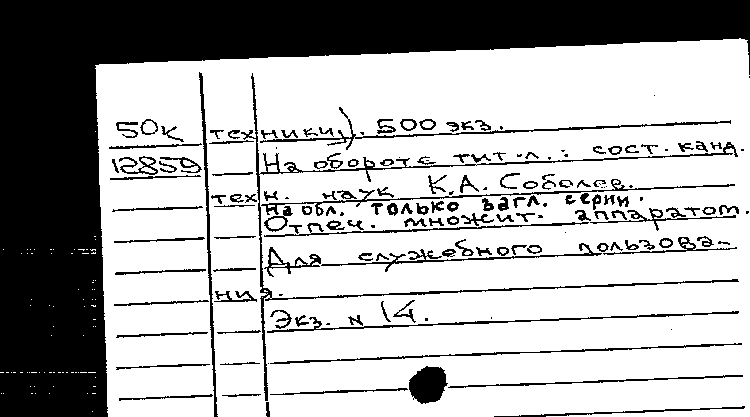 50к техники). 500 экз.
12859 На обороте тит. л.: сост. канд.
техн. наук К.А. Соболев.
На обл. только загл. серии.
Отпеч. множит. аппаратом.
Для служебного пользова-
ния.
Экз. N 14.